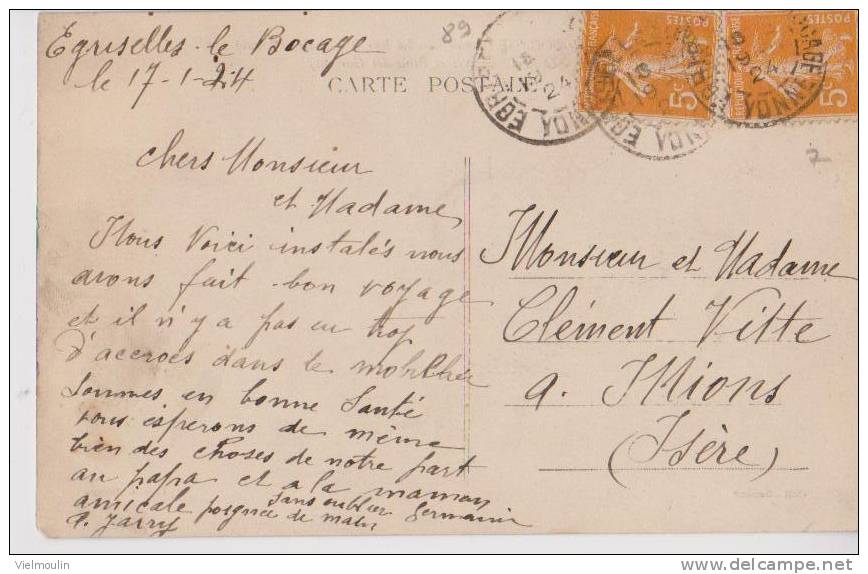 Egriselles-le Bocage
89
le 17-1-24
CARTE POSTALE
chers Monsieur
et Madame,
Nous Voici instalés nous
avons fait bon voyage
et il n'y a pas eu trop
d'accrocs dans le mobilier
sommes en bonne Santé
vous esperons de même
bien des choses de notre part
au papa et a la maman
sans oublier Germain
amicale poignée de main
P. Jarry
5c
POSTES
5c
YONNE
7
Monsieur et Madame
Clément Vitte
a. Mions
(Isère)
Vielmoulin
delcampe.net